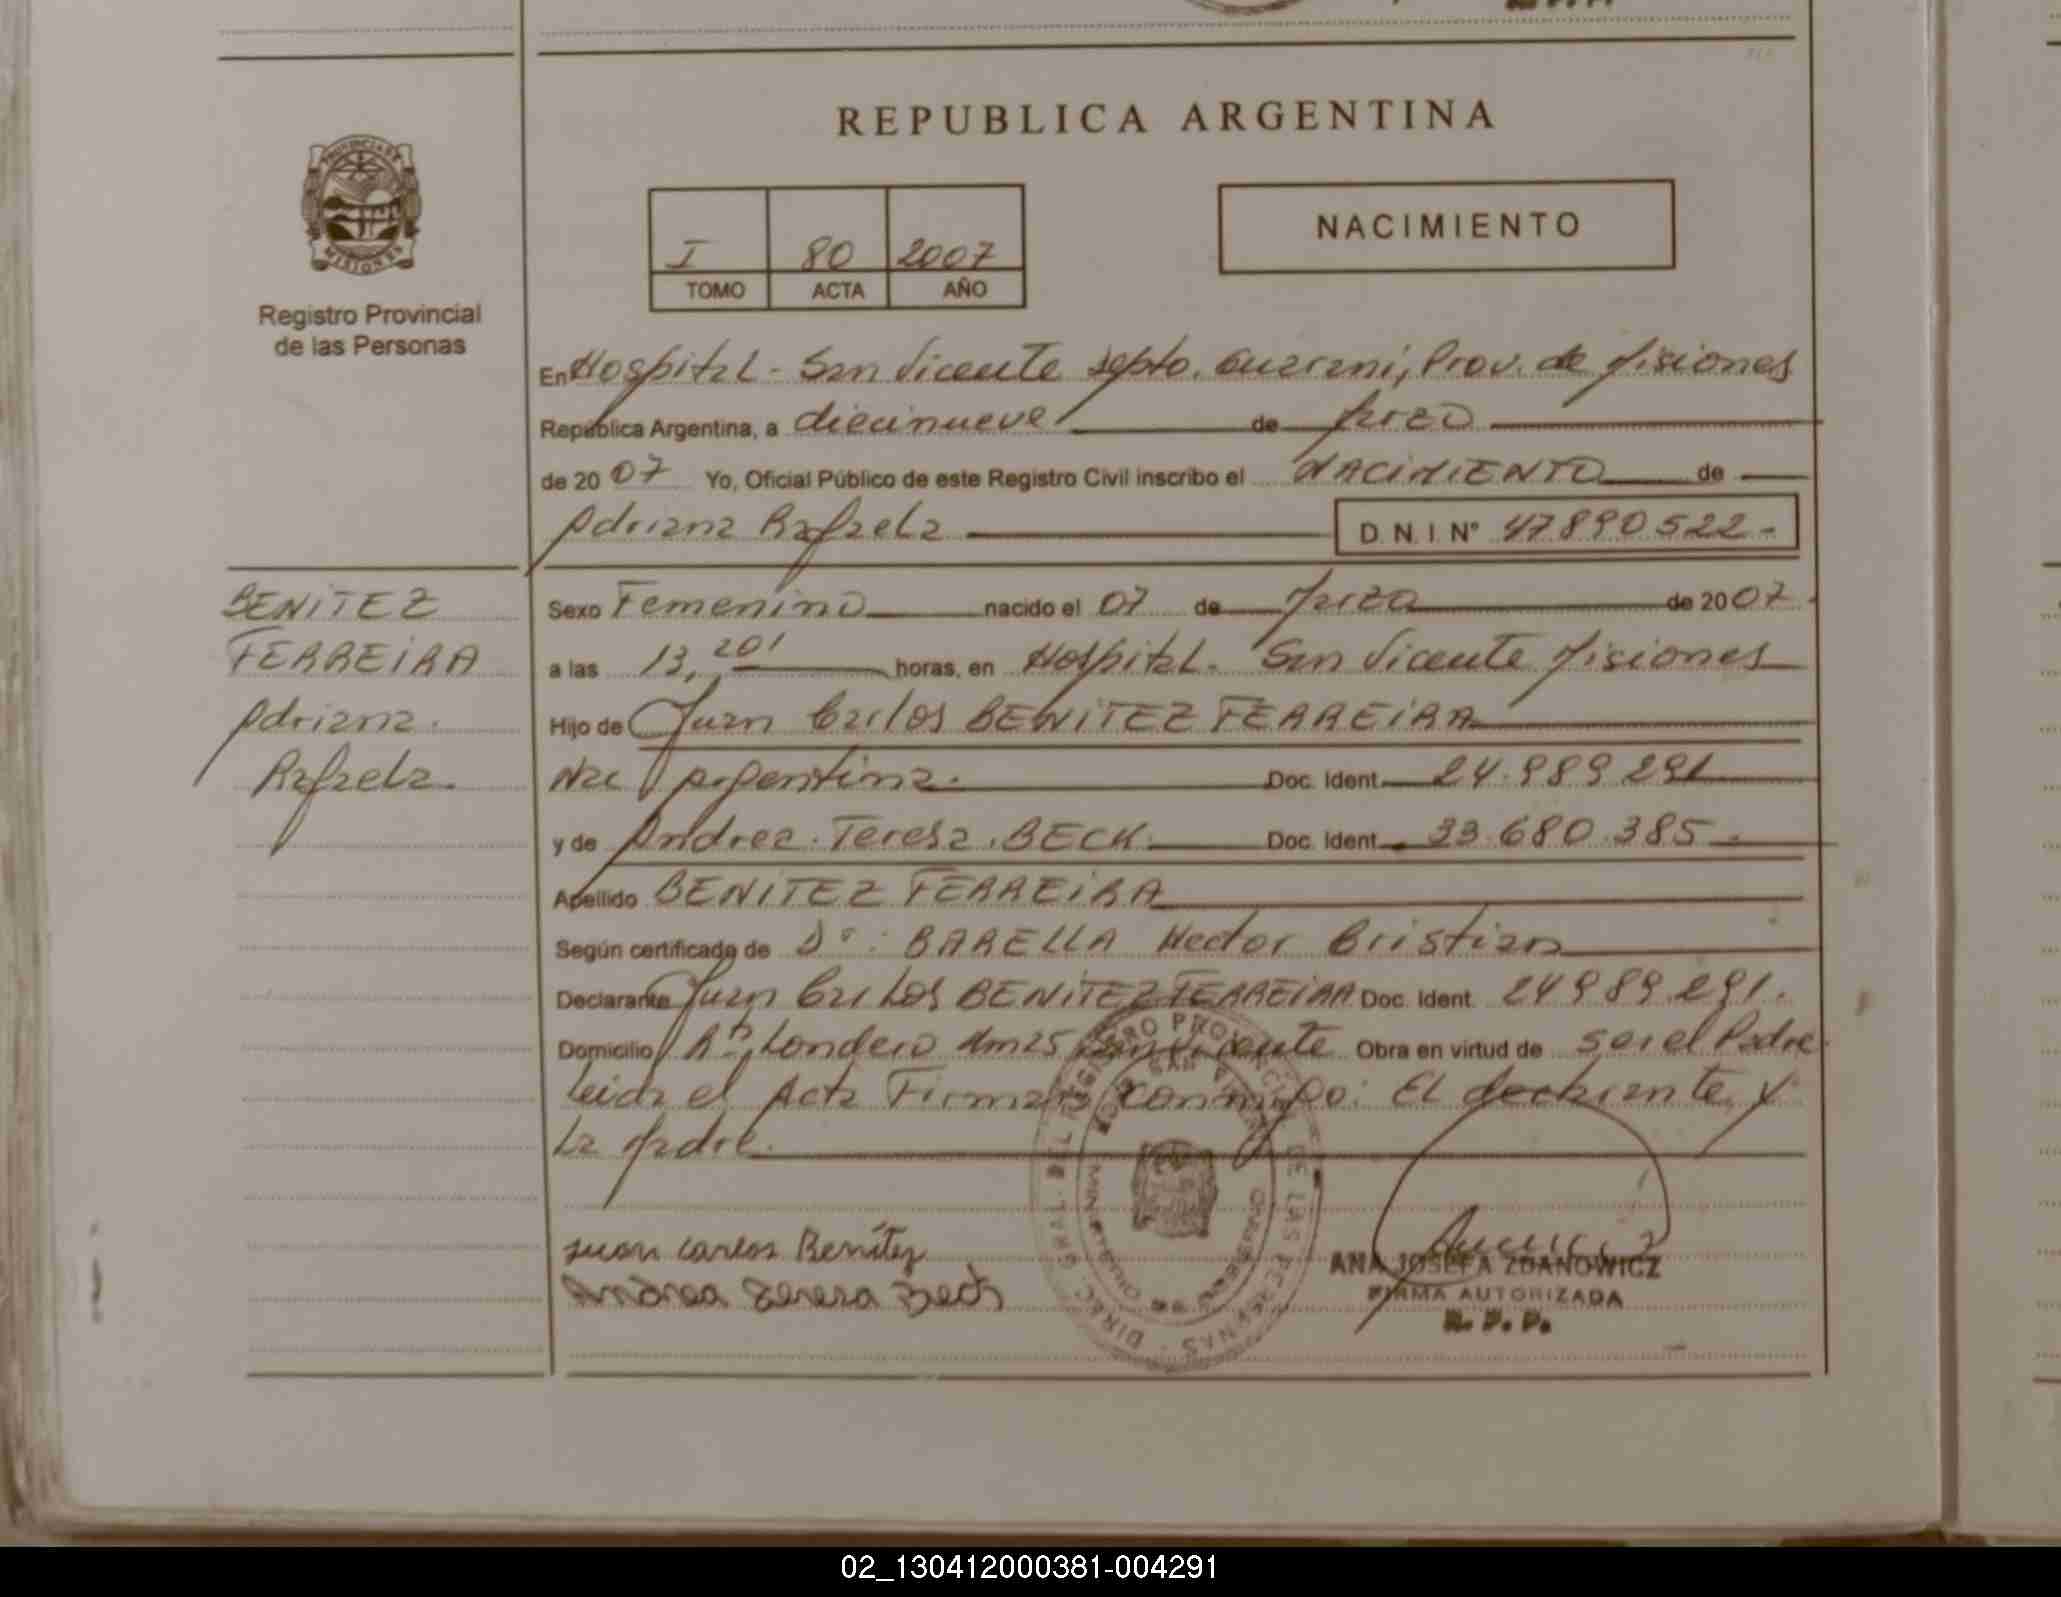 REPUBLICA ARGENTINA
PROVINCIA DE
MISIONES
Registro Provincial
de las Personas
I 80 2007
TOMO ACTA AÑO
NACIMIENTO
En Hospital - San Vicente Depto. Guarani, Prov. de Misiones
República Argentina, a diecinueve de Marzo
de 2007 Yo, Oficial Público de este Registro Civil inscribo el NACIMIENTO de
Adriana Rafaela D.N.I. Nº 47890522-
BENITEZ
FERREIRA
Adriana.
Rafaela.
Sexo Femenino nacido el 07 de Marzo de 2007
a las 13,20' horas, en Hospital. San Vicente Misiones
Hijo de Juan Carlos BENITEZ FERREIRA
Nac Argentina. Doc. Ident. 24.989.291
y de Andrea Teresa BECK. Doc. Ident. 33.680.385-
Apellido BENITEZ FERREIRA
Según certificado de Dr: BARELLA Hector Cristian
Declarante Juan Carlos BENITEZ FERREIRA Doc. Ident. 24989.291.
Domicilio Aº Londero Km25 San Vicente Obra en virtud de ser el Padre
Leida el Acta Firman conmigo: El declarante y
La Madre.
Juan Carlos Benítez
Andrea Teresa Beck
DIREC. GRAL. DEL REGISTRO PROVINCIAL DE LAS PERSONAS
ANA JOSEFA ZDANOWICZ
FIRMA AUTORIZADA
R. P. P.
02_130412000381-004291